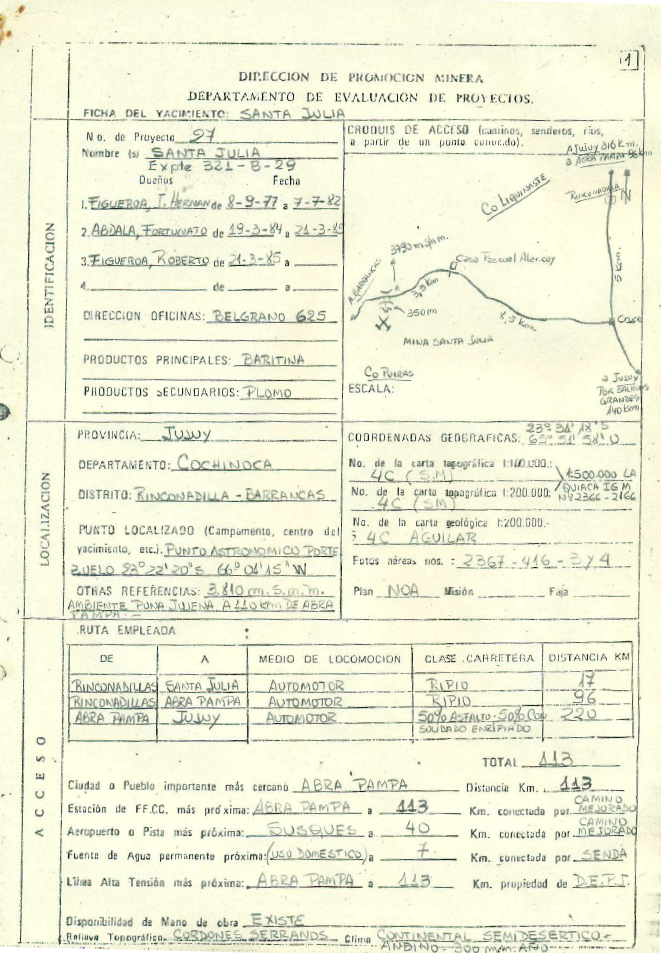 1
DIRECCION DE PROMOCION MINERA
DEPARTAMENTO DE EVALUACION DE PROYECTOS.
FICHA DEL YACIMIENTO: SANTA JULIA
IDENTIFICACION
No. de Proyecto 27
Nombre (s) SANTA JULIA
Expte 321-B-29
Dueños Fecha
1. FIGUEROA, J. HERNAN de 8-9-77 a 7-7-82
2. ABDALA, FORTUNATO de 19-3-84 a 21-3-85
3. FIGUEROA, ROBERTO de 21-3-85 a
4. de a
DIRECCION OFICINAS: BELGRANO 625
PRODUCTOS PRINCIPALES: BARITINA
PRODUCTOS SECUNDARIOS: PLOMO
CROQUIS DE ACCESO (caminos, senderos, rios,
a partir de un punto conocido).
A JUJUY 316 Km.
a ABRA PAMPA 96 Km
RINCONADILLA
N
Co LIQUINASTE
3790 m s/n m.
Casa Pascual
A BARRANCAS
3,5 Km
350 m
8,5 Km.
5 Km.
Casa
MINA SANTA JULIA
Co PUIRAS
a JUJUY
POR SALINAS
GRANDES
140 Km
ESCALA:
LOCALIZACION
PROVINCIA: JUJUY
DEPARTAMENTO: COCHINOCA
DISTRITO: RINCONADILLA - BARRANCAS
PUNTO LOCALIZADO (Campamento, centro del
yacimiento, etc.). PUNTO ASTRONOMICO PORTE
ZUELO 23° 22' 20" S 66° 01' 15" W
OTRAS REFERENCIAS: 3.810 m.s.m.m.
AMBIENTE PUNA JUJEÑA A 110 Km DE ABRA
PAMPA.-
23° 31' 18" S
COORDENADAS GEOGRAFICAS: 65° 51' 58" O
No. de la carta topográfica 1:100.000.:
4C (S.M)
1:500.000 LA
QUIACA IGM
Nº 2366-2166
No. de la carta topográfica 1:200.000:
4C (SM)
No. de la carta geológica 1:200.000.-
: 4C AGUILAR
Fotos aéreas nos. : 2367-416-3 y 4
Plan NOA Misión Faja
ACCESO
RUTA EMPLEADA
DE A MEDIO DE LOCOMOCION CLASE CARRETERA DISTANCIA KM
RINCONADILLAS SANTA JULIA AUTOMOTOR RIPIO 17
RINCONADILLAS ABRA PAMPA AUTOMOTOR RIPIO 96
ABRA PAMPA JUJUY AUTOMOTOR 50% ASFALTO-50% CON 220
SOLIDADO ENRIPIADO
TOTAL 113
Ciudad o Pueblo importante más cercano ABRA PAMPA Distancia Km. 113
Estación de FF.CC. más próxima: ABRA PAMPA a 113 Km. conectada por CAMINO MEJORADO
Aeropuerto o Pista más próxima: SUSQUES a 40 Km. conectada por CAMINO MEJORADO
Fuente de Agua permanente próxima: (USO DOMESTICO) a 7 Km. conectada por SENDA
Línea Alta Tensión más próxima: ABRA PAMPA a 113 Km. propiedad de D.E.P.J.
Disponibilidad de Mano de obra EXISTE
Relieve Topográfico. CORDONES SERRANOS Clima CONTINENTAL SEMIDESERTICO-
ANDINO - 300 mm. AÑO-